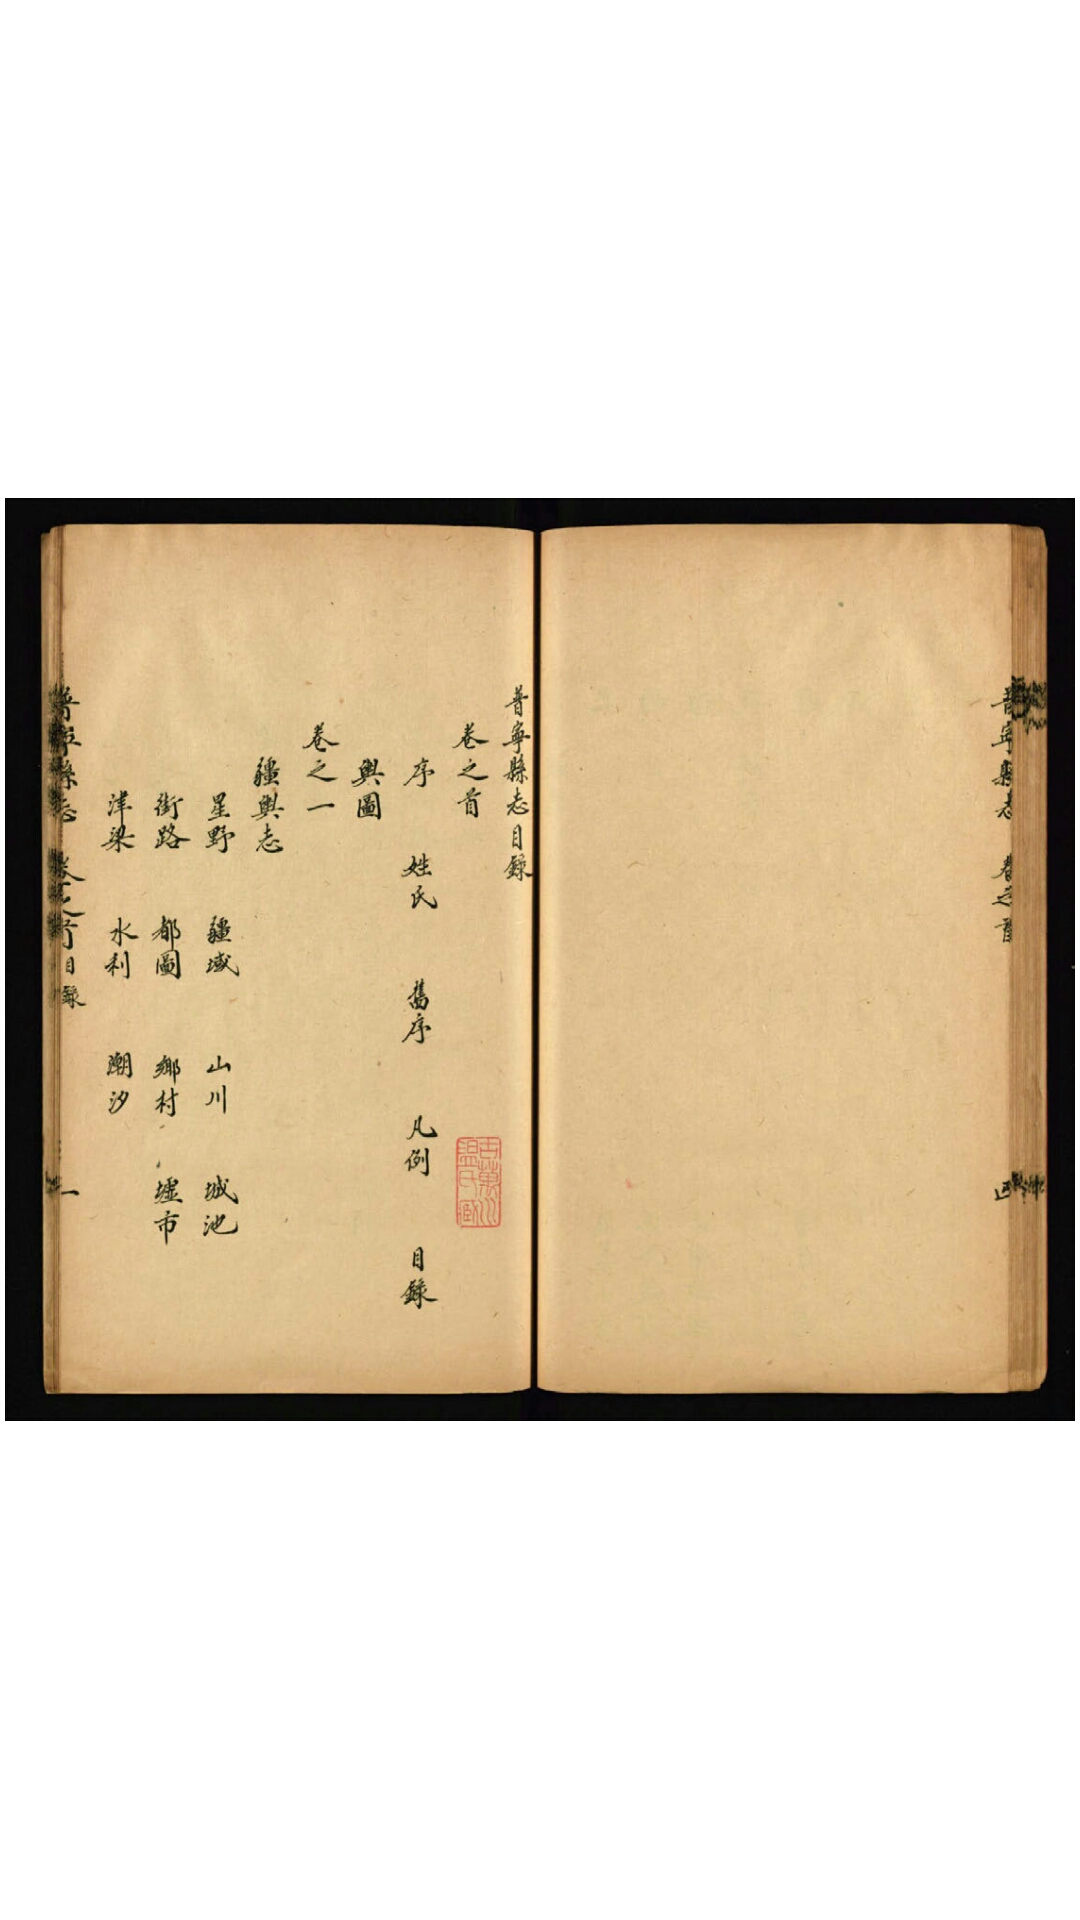 普寧縣志 卷之首
普寧縣志目錄
卷之首
序 姓氏 舊序 凡例 目錄
輿圖
卷之一
疆輿志
星野 疆域 山川 城池
街路 都圖 鄉村 墟市
津梁 水利 潮汐
普寧縣志 卷之首 目錄 一